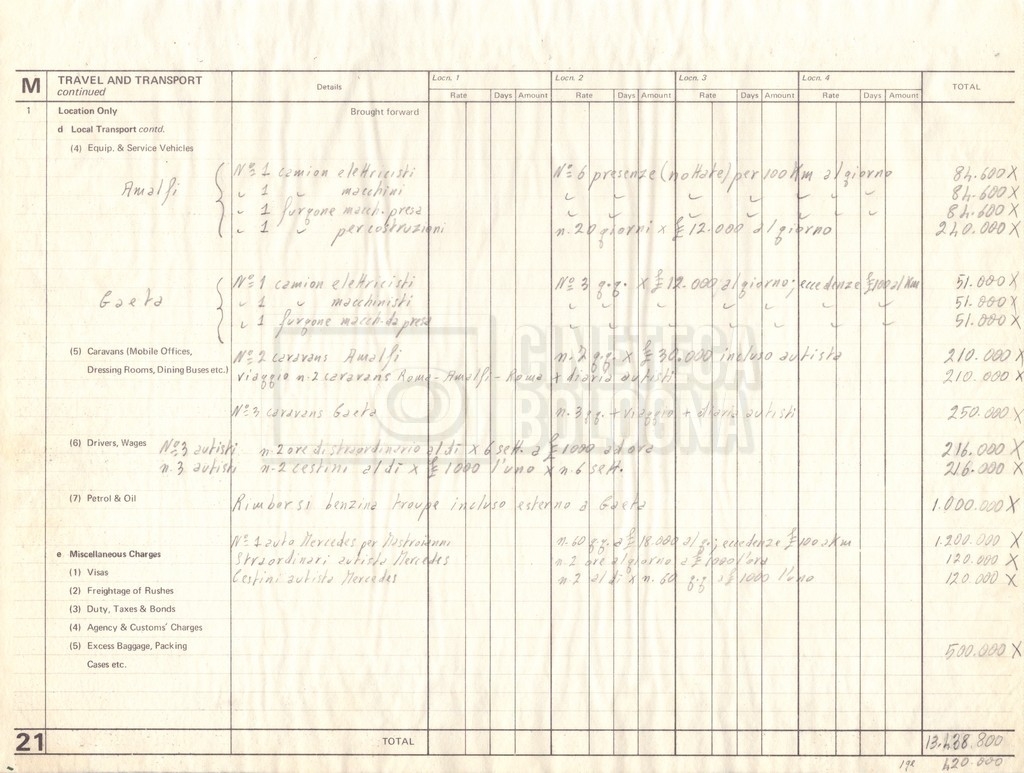 M TRAVEL AND TRANSPORT continued Details Locn. 1 Locn. 2 Locn. 3 Locn. 4 TOTAL
Rate Days Amount Rate Days Amount Rate Days Amount Rate Days Amount
1 Location Only Brought forward
d Local Transport contd.
(4) Equip. & Service Vehicles
Amalfi Nº 1 camion elettricisti Nº 6 presenze (nottate) per 100 Km al giorno 84.600 X
" 1 " macchini " " " " " " 84.600 X
" 1 furgone macch. presa " " " " " " 84.600 X
" 1 " per costruzioni n. 20 giorni x £ 12.000 al giorno 240.000 X
Gaeta Nº 1 camion elettricisti Nº 3 g.g. x £ 12.000 al giorno; eccedenze £ 100 al Km 51.000 X
" 1 " macchinisti " " " " " " " 51.000 X
" 1 furgone macch. da presa " " " " " " " 51.000 X
(5) Caravans (Mobile Offices, Nº 2 caravans Amalfi £ 30.000 incluso autista 210.000 X
Dressing Rooms, Dining Buses etc.) viaggio n. 2 caravans Roma - Amalfi - Roma x diaria autisti 210.000 X
Nº 3 caravans Gaeta n. 3 gg. + viaggio + diaria autisti 250.000 X
(6) Drivers, Wages Nº 3 autisti n. 2 ore di straordinario al dì x 6 sett. a £ 1000 ad ora 216.000 X
n. 3 autisti n. 2 cestini al dì x £ 1000 l'uno x n. 6 sett. 216.000 X
(7) Petrol & Oil Rimborsi benzina troupe incluso esterno a Gaeta 1.000.000 X
Nº 1 auto Mercedes per Mastroianni n. 60 g.g. a £ 18.000 al g.; eccedenze £ 100 a Km 1.200.000 X
e Miscellaneous Charges Straordinari autista Mercedes n. 2 ore al giorno a £ 1000 l'ora 120.000 X
(1) Visas Cestini autista Mercedes n. 2 al dì x n. 60 g.g. a £ 1000 l'uno 120.000 X
(2) Freightage of Rushes
(3) Duty, Taxes & Bonds
(4) Agency & Customs' Charges
(5) Excess Baggage, Packing 500.000 X
Cases etc.
CINETECA
BOLOGNA
21 TOTAL 13.438.800
420.000